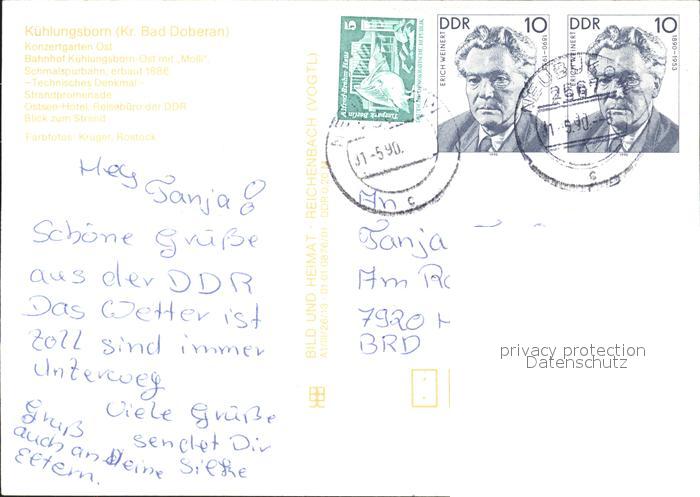 Kühlungsborn (Kr. Bad Doberan)
Konzertgarten Ost
Bahnhof Kühlungsborn-Ost mit „Molli",
Schmalspurbahn, erbaut 1886
–Technisches Denkmal–
Strandpromenade
Ostsee-Hotel, Reisebüro der DDR
Blick zum Strand
Farbfotos: Krüger, Rostock
Hey
Tanja!
Schöne Grüße
aus der DDR
Das Wetter ist
toll sind immer
Unterweg
Viele Grüße
sendet Dir
Deine Silke
Gruß
auch an
Eltern.
BILD UND HEIMAT · REICHENBACH (VOGTL)
5
Alfred-Brehm-Haus
Tierpark Berlin
DDR 10
ERICH WEINERT
1890-1953
DDR 10
ERICH WEINERT
1890-1953
01-5.90.
01-5.90.
c
c
An
Tanja
Am
7920
BRD
privacy protection
Datenschutz